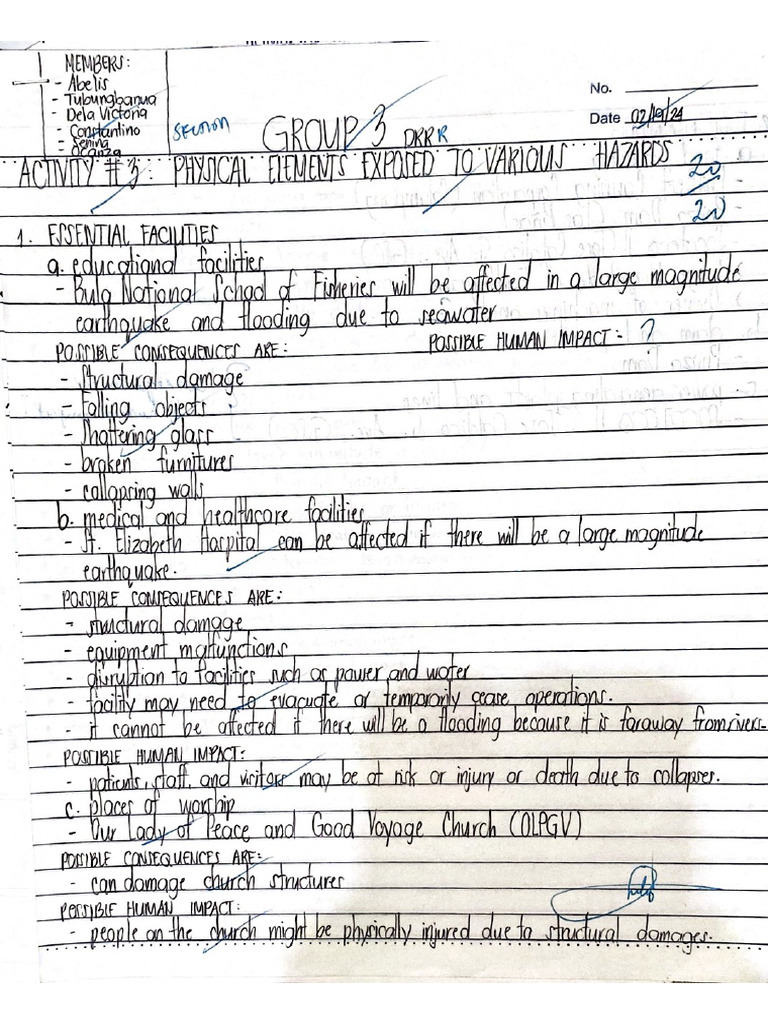 MEMBERS:
- Abelis
- Tubungbanua
- Dela Victoria
- Constantino
- Senina
- Ocanza
No.
Date 02/19/24
SECTION
GROUP 3 DRRR
ACTIVITY # 3: PHYSICAL ELEMENTS EXPOSED TO VARIOUS HAZARDS
20
20
1. ESSENTIAL FACILITIES
a. educational facilities
- Bula National School of Fisheries will be affected in a large magnitude
earthquake and flooding due to seawater
POSSIBLE CONSEQUENCES ARE: POSSIBLE HUMAN IMPACT: ?
- Structural damage
- Falling objects
- Shattering glass
- broken furnitures
- collapsing walls
b. medical and healthcare facilities
- St. Elizabeth Hospital can be affected if there will be a large magnitude
earthquake.
POSSIBLE CONSEQUENCES ARE:
- structural damage
- equipment malfunctions
- disruption to facilities such as power and water
- facility may need to evacuate or temporarily cease operations.
- it cannot be affected if there will be a flooding because it is faraway from rivers.
POSSIBLE HUMAN IMPACT:
- patients, staff, and visitors may be at risk or injury or death due to collapses.
c. places of worship
- Our Lady of Peace and Good Voyage Church (OLPGV)
POSSIBLE CONSEQUENCES ARE:
- can damage church structures
POSSIBLE HUMAN IMPACT:
- people on the church might be physically injured due to structural damages.